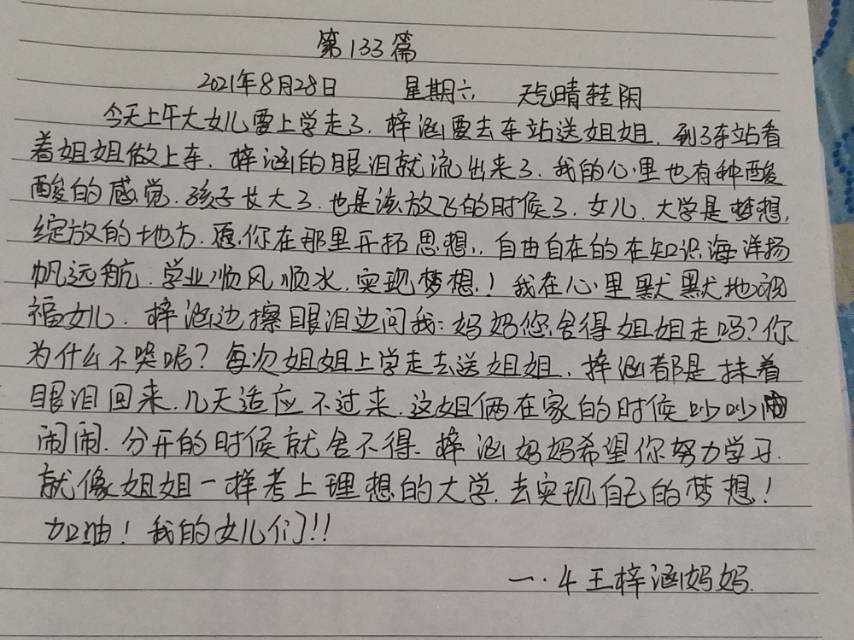 第133篇
2021年8月28日 星期六 天气晴转阴
今天上午大女儿要上学走了.梓涵要去车站送姐姐.到了车站看
着姐姐做上车.梓涵的眼泪就流出来了.我的心里也有种酸
酸的感觉.孩子长大了.也是该放飞的时候了.女儿.大学是梦想,
绽放的地方.愿你在那里开拓思想,.自由自在的在知识海洋扬
帆远航.学业顺风顺水.实现梦想!我在心里默默地祝
福女儿.梓涵边擦眼泪边问我:妈妈您舍得姐姐走吗?你
为什么不哭呢?每次姐姐上学走去送姐姐.梓涵都是抹着
眼泪回来.几天适应不过来.这姐俩在家的时候吵吵闹
闹闹.分开的时候就舍不得.梓涵妈妈希望你努力学习.
就像姐姐一样考上理想的大学.去实现自己的梦想!
加油!我的女儿们!!
一.4王梓涵妈妈.